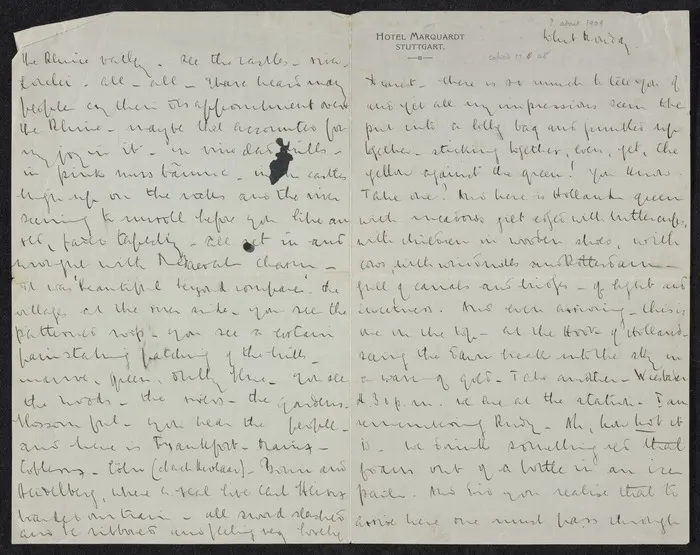 HOTEL MARQUARDT
STUTTGART.
? about 1909
Whit Monday
Dearest - there is so much to tell you of
and yet all my impressions seem to be
put into a lolly bag and jumbled up
together - sticking together, even, yet, the
yellow against the green! You know.
Take one! And here is Holland - green
with meadows gilt edged with buttercups,
with children in wooden shoes, with
cows, with windmills and Rotterdam -
full of canals and bridges - of light and
sweetness. And even arriving - this is
one in the top - at the Hook of Holland -
seeing the dawn break into the sky in
a wave of gold - Take another - Wiesbaden
2.31 p.m. we are at the station - I am
remembering Rudy - Ah, how hot it
is - we drink something red that
foams out of a bottle in an ice
pail. And did you realise that to
arrive here one must pass through
the Rhine valley - see the castles - river
- all - all - I have heard many
people cry their disappointment over
the Rhine - maybe that accounted for
my joy in it - in vine clad hills -
in pink - with castles
high up on the rocks and the river
seeming to unroll before you like an
old, faded tapestry - all set in and
wrought with Mediaeval charm -
it was beautiful beyond compare! the
villages at the river side - you see the
patterned - you see a certain
painstaking patching of the hills -
mauve, green, blue - you see
the woods - the - the gardens
blossom full - you hear the people -
and here is Frankfort - Mainz -
Coblenz - Cöln - Bonn and
Heidelberg, where a real live
boarded our train - all sword slashed
and be ribboned and feeling very lovely